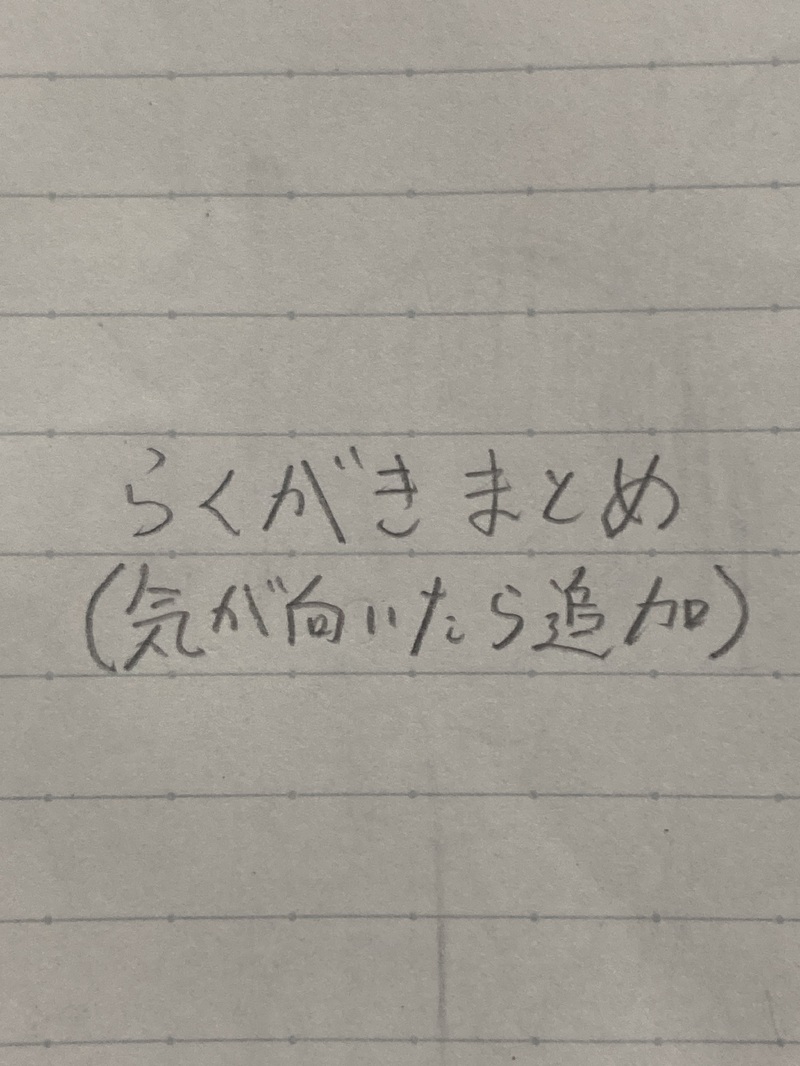 らくがきまとめ
(気が向いたら追加)